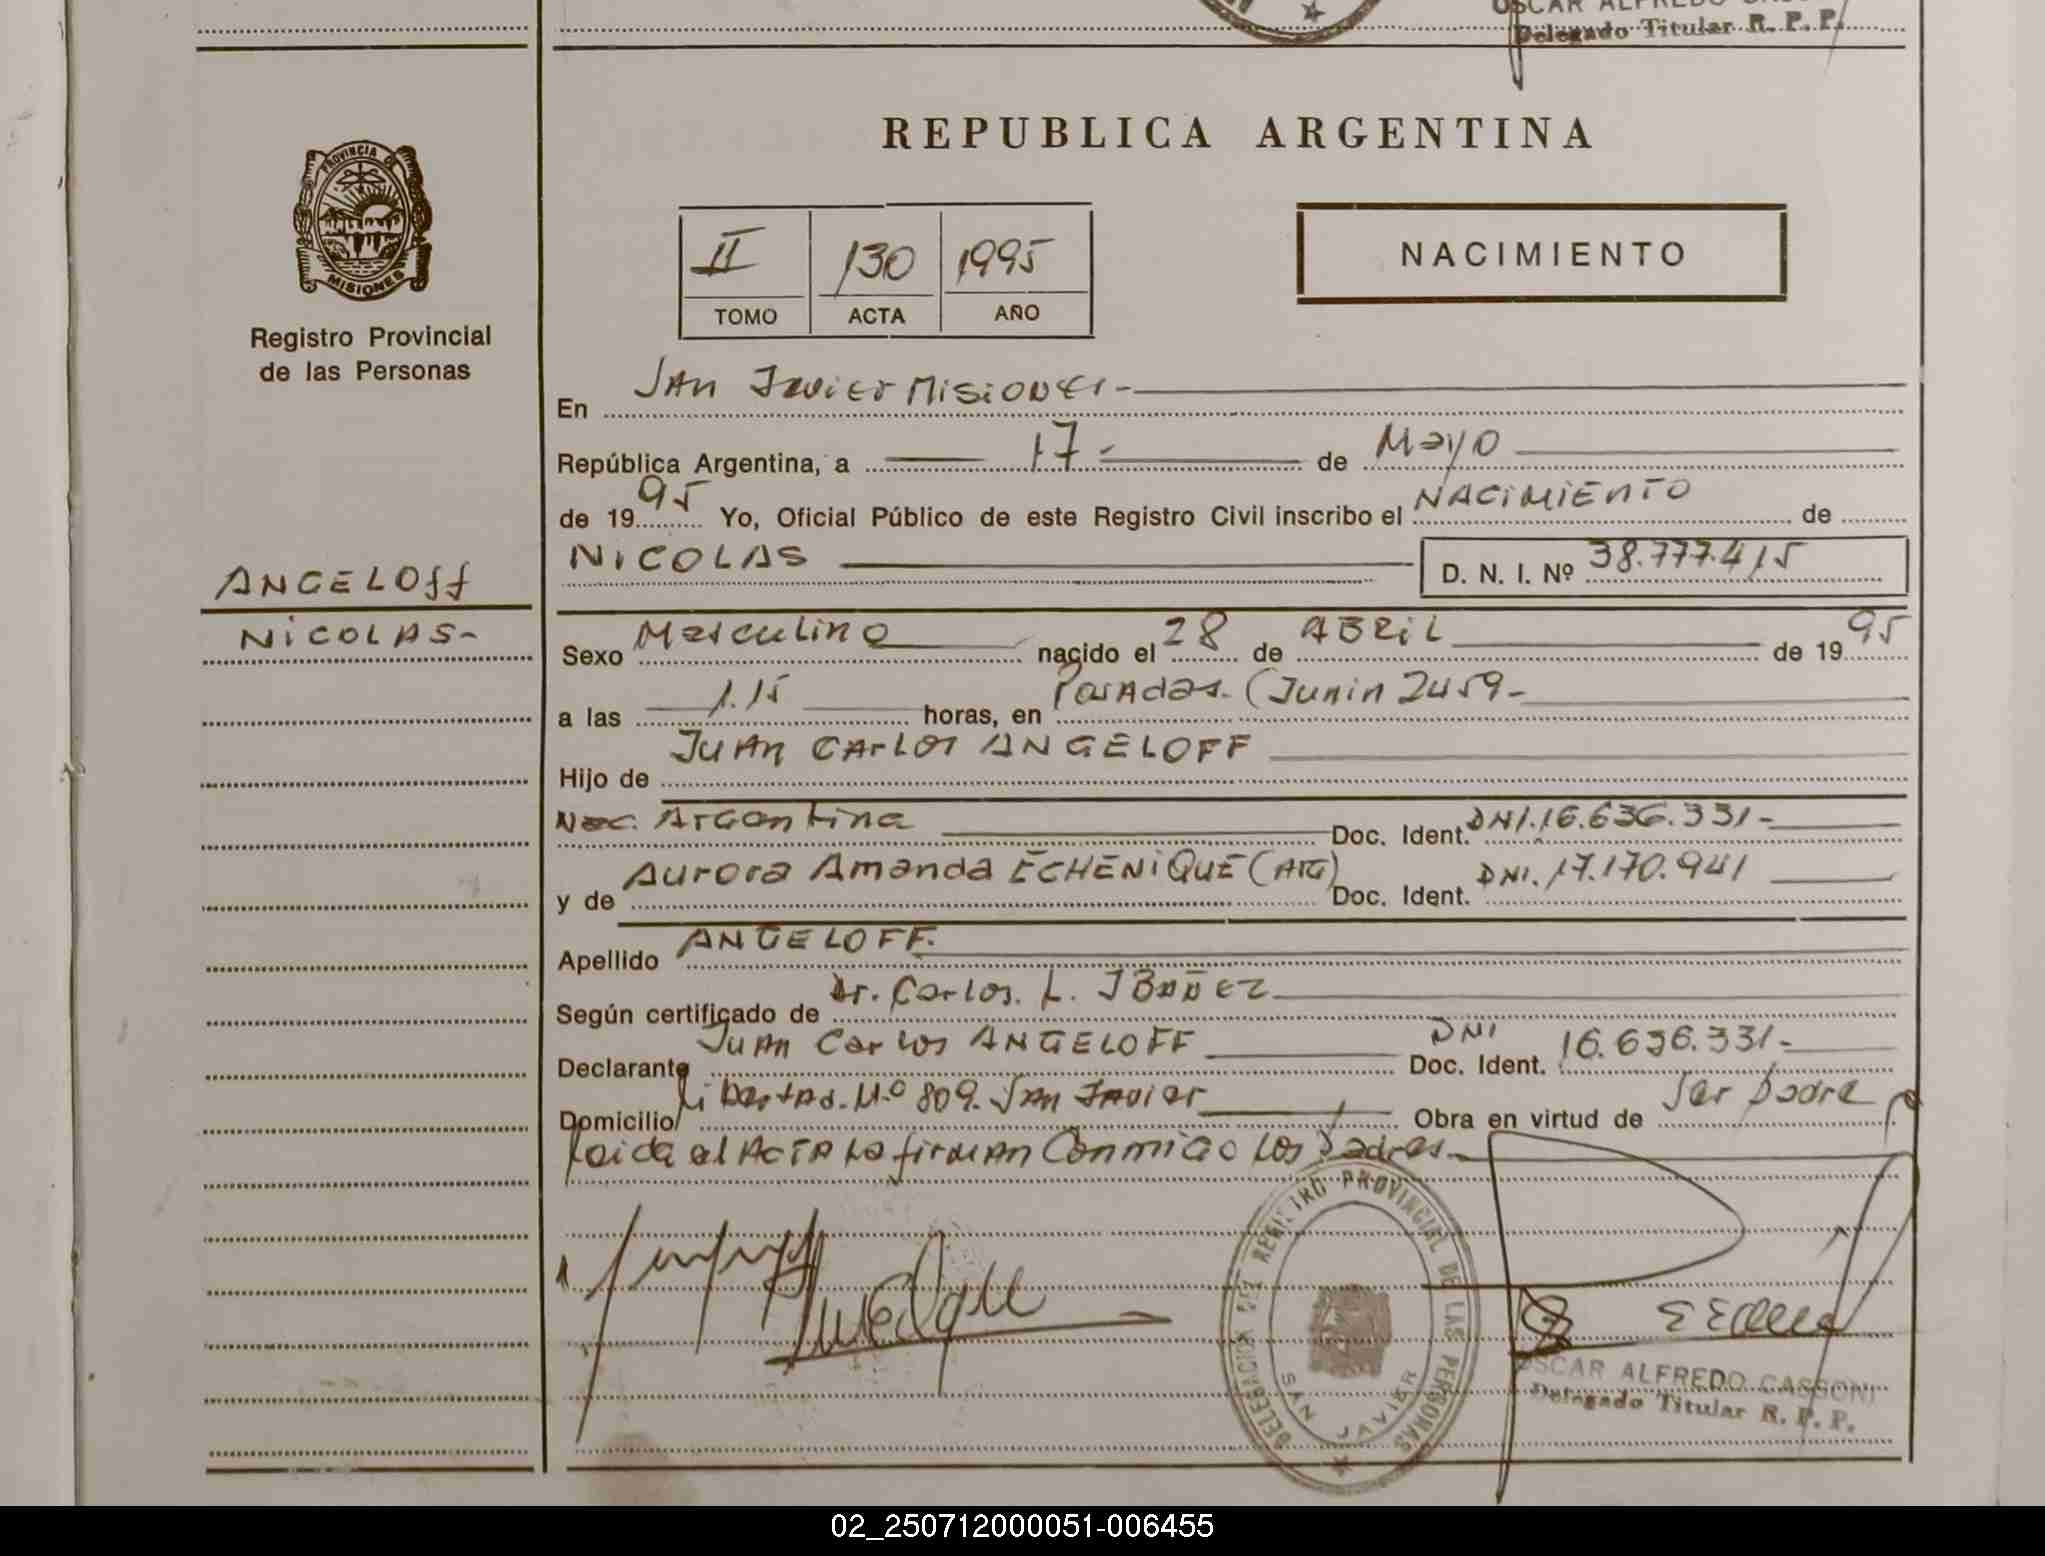 OSCAR ALFREDO CASSONI
Delegado Titular R. P. P.
PROVINCIA DE
MISIONES
Registro Provincial
de las Personas
ANGELOFF
NICOLAS-
REPUBLICA ARGENTINA
II 130 1995
TOMO ACTA AÑO
NACIMIENTO
En San Javier Misiones-
República Argentina, a 17- de Mayo
de 1995 Yo, Oficial Público de este Registro Civil inscribo el NACIMIENTO de
NICOLAS D. N. I. Nº 38.777.415
Sexo Masculino nacido el 28 de ABRIL de 1995
a las 1.15 horas, en Posadas. (Junin 2459-
Hijo de Juan Carlos ANGELOFF
Nac. Argentina Doc. Ident. DNI.16.636.331-
y de Aurora Amanda ECHENIQUE (ARG) Doc. Ident. DNI.17.170.941
Apellido ANGELOFF.
Según certificado de Dr. Carlos. L. IBAÑEZ
Declarante Juan Carlos ANGELOFF DNI Doc. Ident. 16.636.331-
Domicilio Libertad. N.º 809. San Javier Obra en virtud de Ser padre
Leida el ACTA la firman Conmigo los padres.
DELEGACION DEL REGISTRO PROVINCIAL DE LAS PERSONAS
SAN JAVIER
OSCAR ALFREDO CASSONI
Delegado Titular R. P. P.
02_250712000051-006455